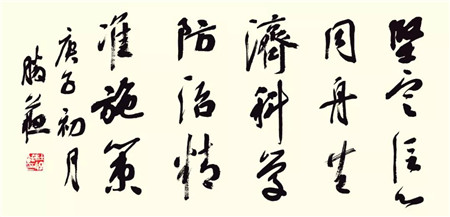 坚定信心
同舟共
济科学
防治精
准施策
庚子初月
勝蘇